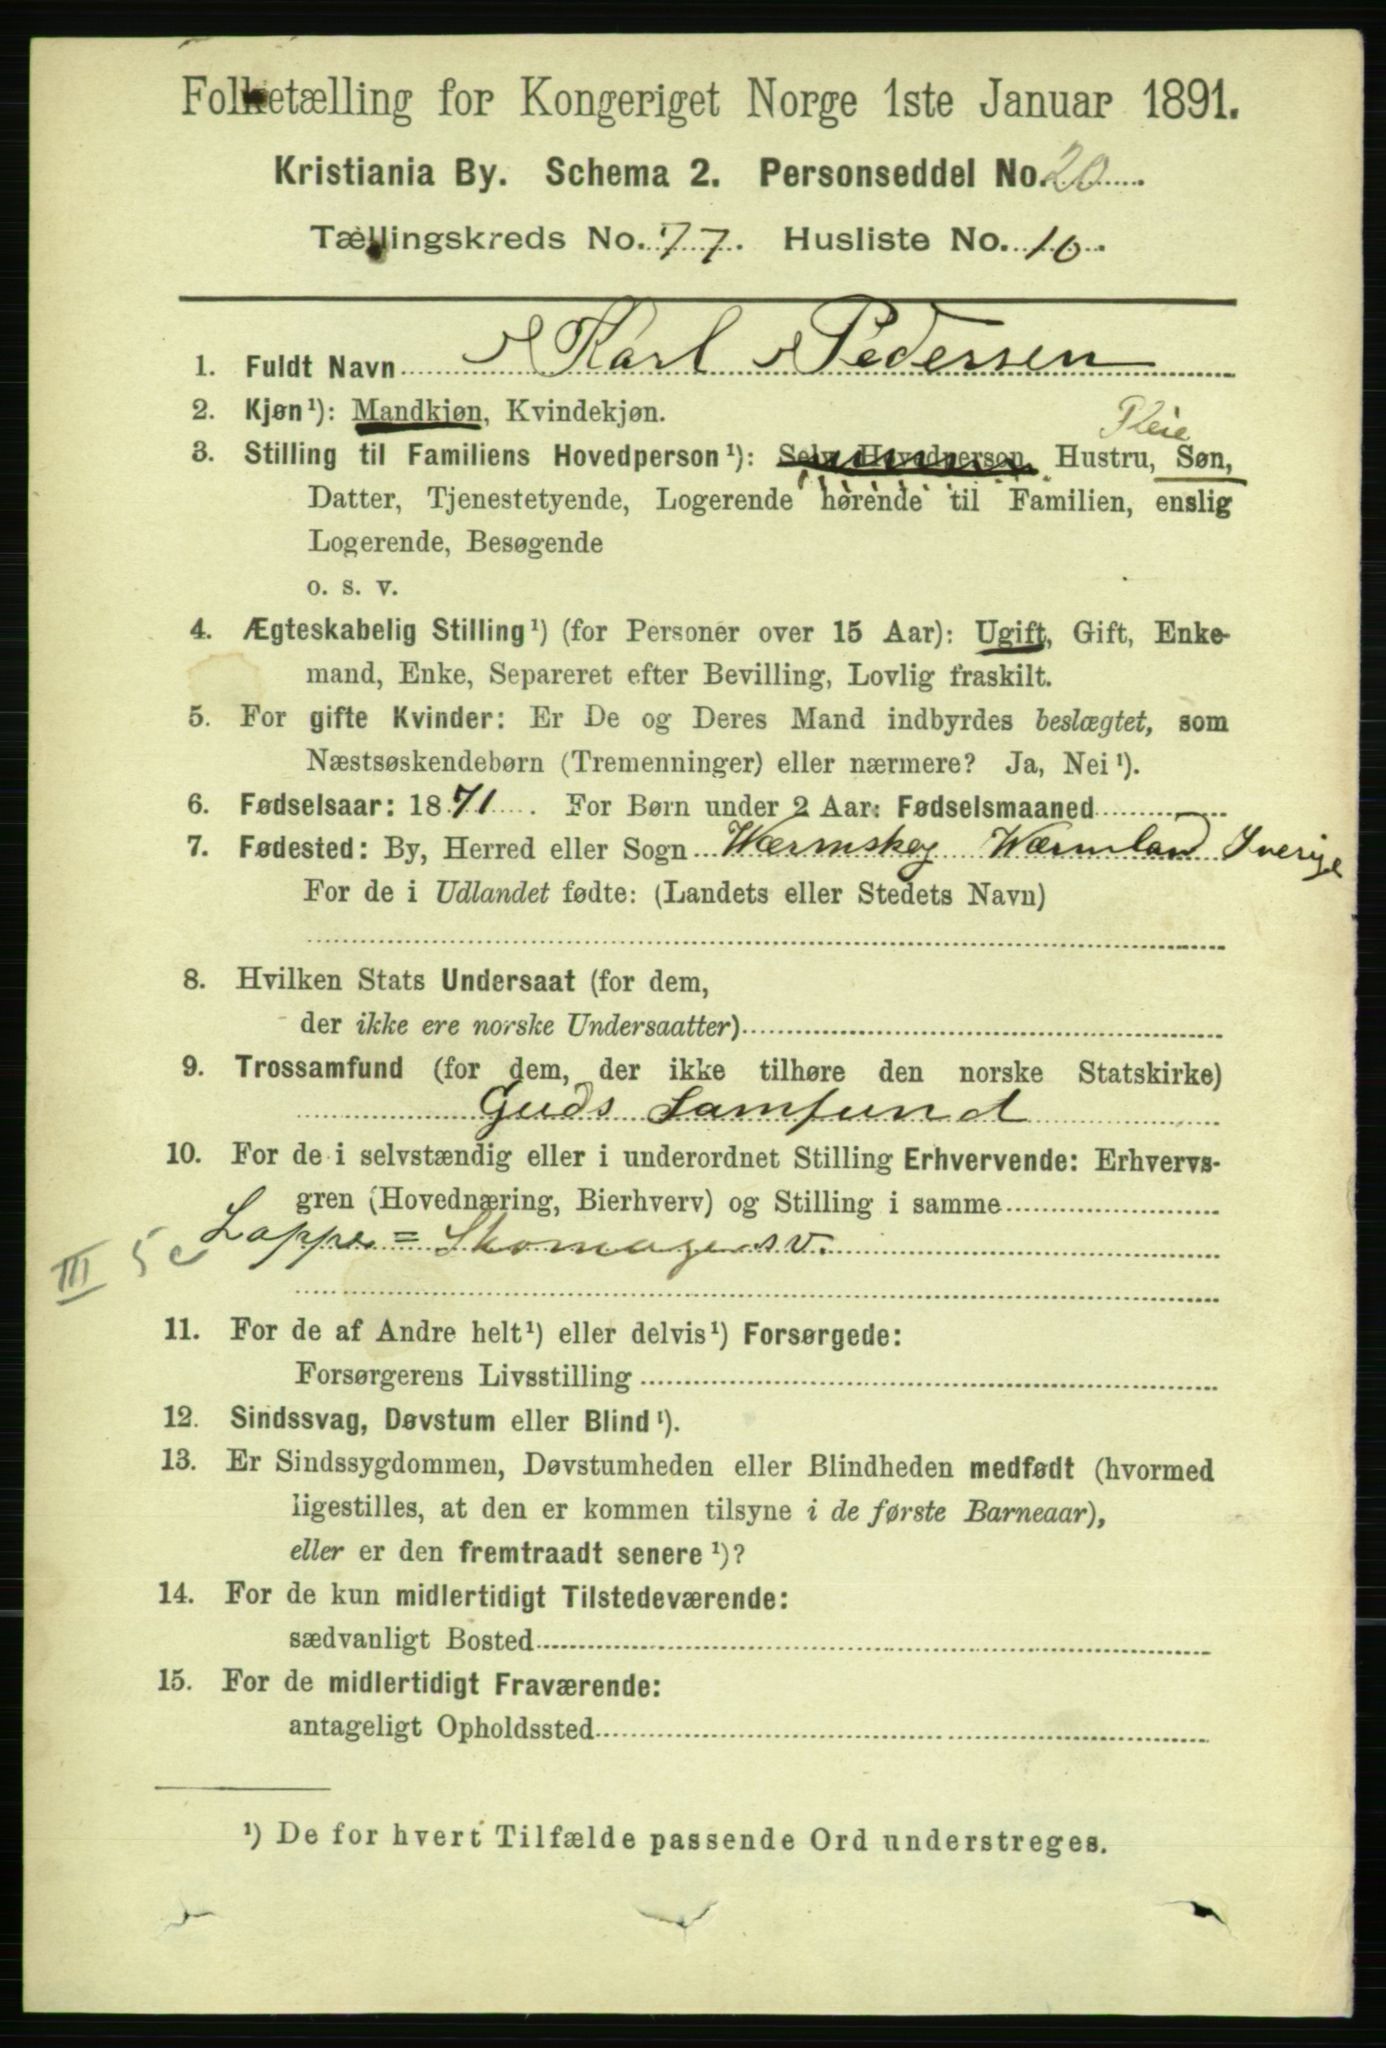 Folketælling for Kongeriget Norge 1ste Januar 1891.
Kristiania By. Schema 2. Personseddel No. 20
Tællingskreds No. 77. Husliste No. 10.
1. Fuldt Navn Karl Pedersen
2. Kjøn¹): Mandkjøn, Kvindekjøn.
Pleie
3. Stilling til Familiens Hovedperson¹): Selv Hovedperson, Hustru, Søn,
Datter, Tjenestetyende, Logerende hørende til Familien, enslig
Logerende, Besøgende
o. s. v.
4. Ægteskabelig Stilling¹) (for Personer over 15 Aar): Ugift, Gift, Enke-
mand, Enke, Separeret efter Bevilling, Lovlig fraskilt.
5. For gifte Kvinder: Er De og Deres Mand indbyrdes beslægtet, som
Næstsøskendebørn (Tremenninger) eller nærmere? Ja, Nei¹).
6. Fødselsaar: 1871. For Børn under 2 Aar: Fødselsmaaned
7. Fødested: By, Herred eller Sogn Wærmskog Wærmland Sverige
For de i Udlandet fødte: (Landets eller Stedets Navn)
8. Hvilken Stats Undersaat (for dem,
der ikke ere norske Undersaatter)
9. Trossamfund (for dem, der ikke tilhøre den norske Statskirke)
Guds Samfund
10. For de i selvstændig eller i underordnet Stilling Erhvervende: Erhvervs-
gren (Hovednæring, Bierhverv) og Stilling i samme
Lappe = Skomagersv.
III 5c
11. For de af Andre helt¹) eller delvis¹) Forsørgede:
Forsørgerens Livsstilling
12. Sindssvag, Døvstum eller Blind¹).
13. Er Sindssygdommen, Døvstumheden eller Blindheden medfødt (hvormed
ligestilles, at den er kommen tilsyne i de første Barneaar),
eller er den fremtraadt senere¹)?
14. For de kun midlertidigt Tilstedeværende:
sædvanligt Bosted
15. For de midlertidigt Fraværende:
antageligt Opholdssted
¹) De for hvert Tilfælde passende Ord understreges.